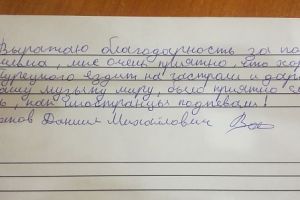 Выражаю благодарность за по
мне очень приятно, что хор
Турецкого ездит на гастроли и дарит
музыку миру, было приятно
как иностранцы подпевали!
Даниил Михайлович